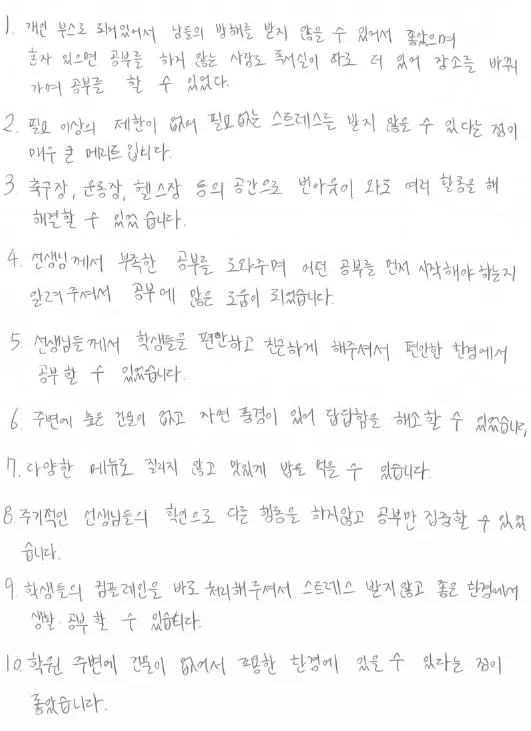 1. 개인 부스로 되어있어서 남들의 방해를 받지 않을 수 있어서 좋았으며
혼자 있으면 공부를 하지 않는 사람도 독서실이 따로 더 있어 장소를 바꿔
가며 공부를 할 수 있었다.
2. 필요 이상의 제한이 없어 필요없는 스트레스를 받지 않을 수 있다는 점이
매우 큰 메리트입니다.
3. 축구장, 운동장, 헬스장 등의 공간으로 번아웃이 와도 여러 활동을 해
해결할 수 있었습니다.
4. 선생님께서 부족한 공부를 도와주며 어떤 공부를 먼저 시작해야 하는지
알려주셔서 공부에 많은 도움이 되었습니다.
5. 선생님들께서 학생들을 편안하고 친근하게 해주셔서 편안한 환경에서
공부할 수 있었습니다.
6. 주변에 높은 건물이 없고 자연 풍경이 있어 답답함을 해소할 수 있었습니다
7. 다양한 메뉴로 질리지 않고 맛있게 밥을 먹을 수 있습니다.
8. 주기적인 선생님들의 확인으로 다른 행동을 하지않고 공부만 집중할 수 있었
습니다.
9. 학생들의 컴플레인을 바로 처리해주셔서 스트레스 받지않고 좋은 환경에서
생활·공부할 수 있습니다.
10. 학원 주변에 건물이 없어서 조용한 환경에 있을 수 있다는 점이
좋았습니다.